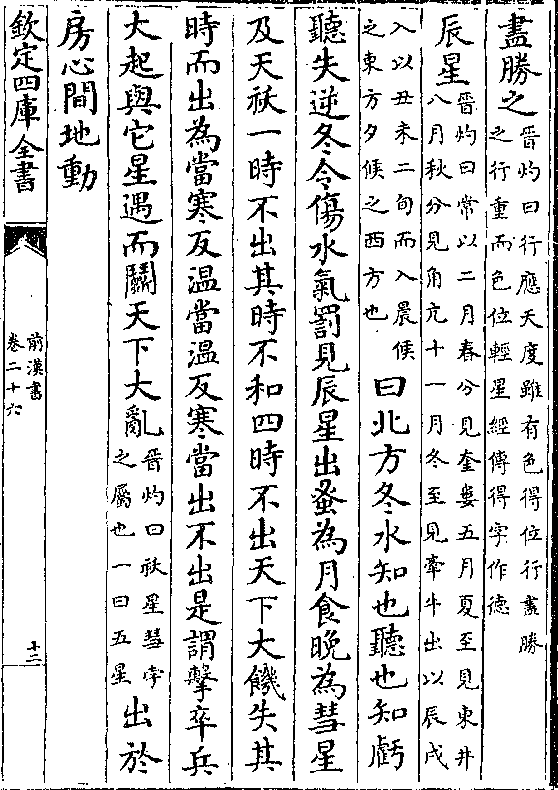 盡勝之晉灼曰行應天度雖有色得位行盡勝
之行重而色位輕星經傳得字作德
辰星晉灼曰常以二月春分見奎婁五月夏至見東井
八月秋分見角亢十一月冬至見牽牛出以辰戌
入以丑未二旬而入晨候
之東方夕候之西方也曰北方冬水知也聽也知虧
聽失逆冬令傷水氣罰見辰星出蚤為月食晚為彗星
及天祅一時不出其時不和四時不出天下大饑失其
時而出為當寒反温當温反寒當出不出是謂擊卒兵
大起與它星遇而鬭天下大亂晉灼曰祅星彗孛
之屬也一曰五星出於
房心間地動
欽定四庫全書
前漢書
卷二十六
十二